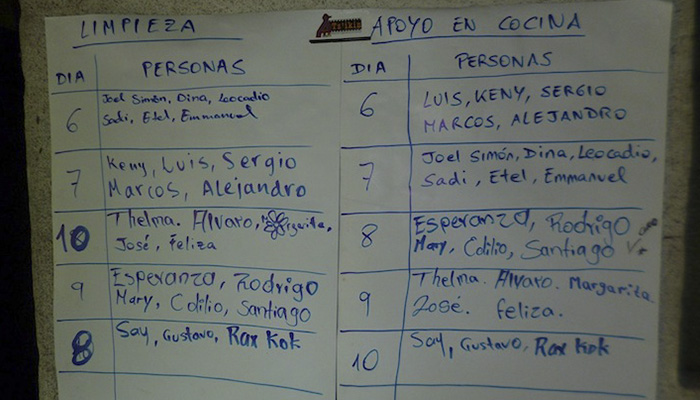 LIMPIEZA
DIA PERSONAS
6 Joel Simón, Dina, Leocadio
Sadi, Etel, Emmanuel
7 Keny, Luis, Sergio
Marcos, Alejandro
10 Thelma. Alvaro, Margarita,
José, Feliza
9 Esperanza, Rodrigo
Mary, Cdilio, Santiago
8 Say, Gustavo, Rax Kok
APOYO EN COCINA
DIA PERSONAS
6 LUIS, KENY, SERGIO
MARCOS, ALEJANDRO
7 Joel Simón, Dina, Leocadio,
Sadi, Etel, Emmanuel
8 Esperanza, Rodrigo
Mary, Cdilio, Santiago
9 Thelma. Alvaro. Margarita
José. feliza.
10 Say, Gustavo, Rax Kok